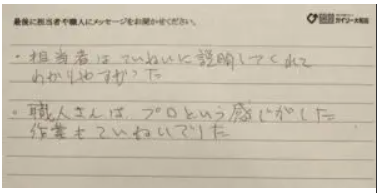 最後に担当者や職人にメッセージをお聞かせください。
・担当者はていねいに説明してくれて
わかりやすかった
・職人さんは、プロという感じがした
作業もていねいでした